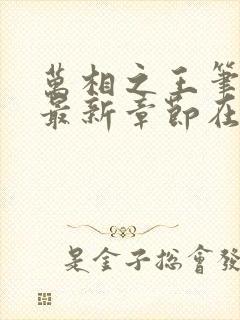 萬相之王筆
最新章節在
是金子总會發